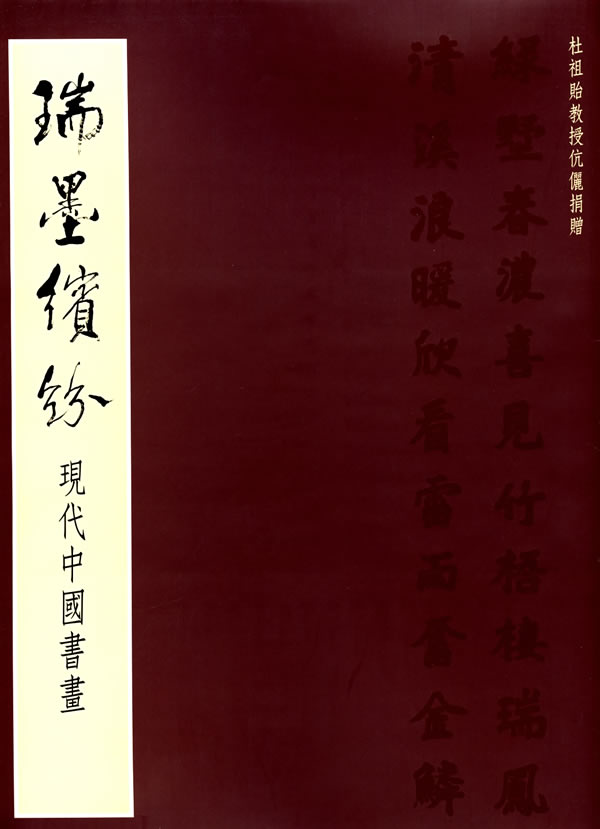 杜祖貽教授伉儷捐贈
綠墅春濃喜見竹梧棲瑞鳳
清溪浪暖欣看雷雨奮金鱗
瑞墨繽紛
現代中國書畫